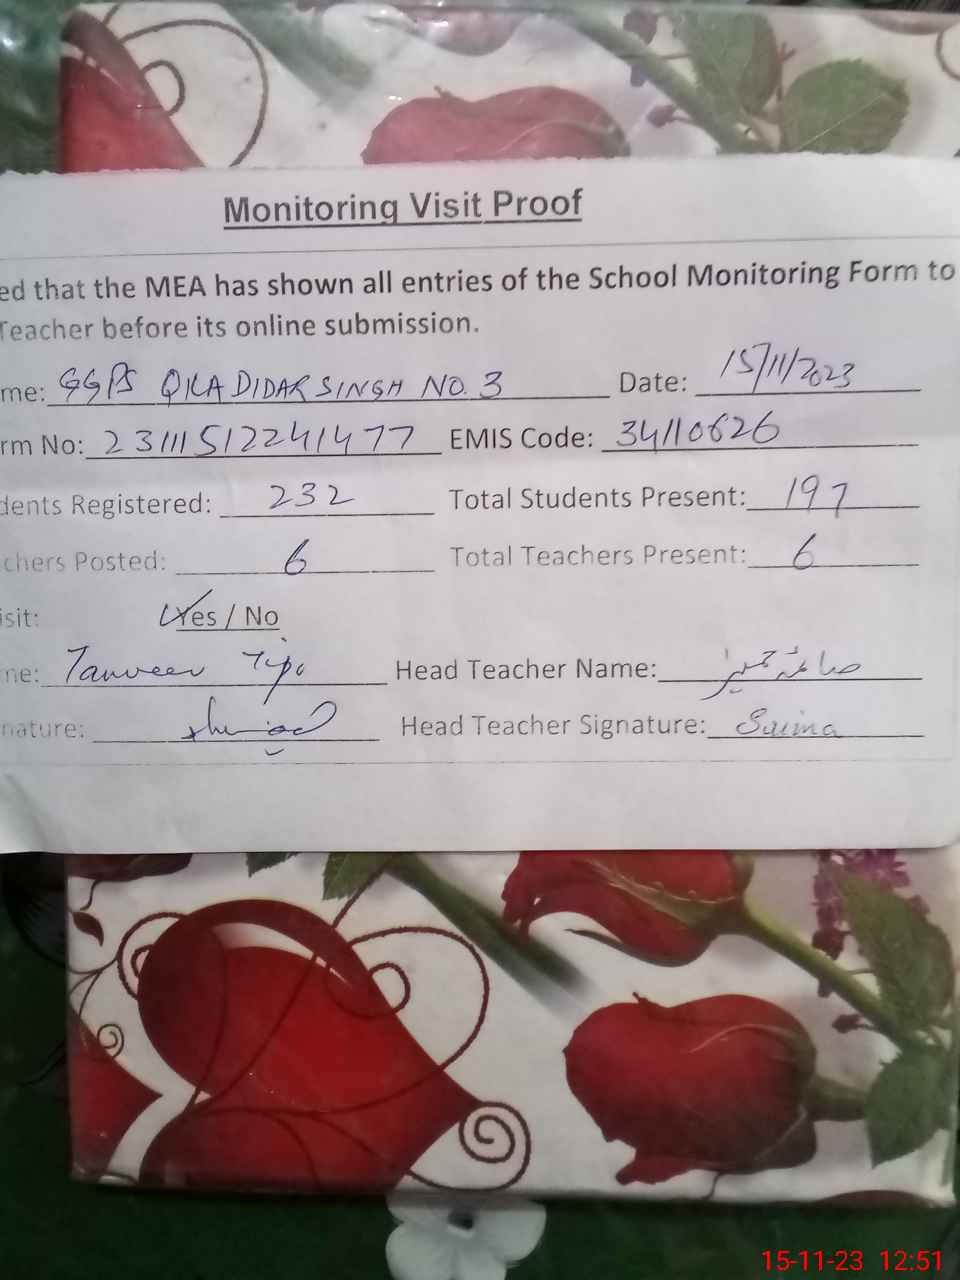 Monitoring Visit Proof
ed that the MEA has shown all entries of the School Monitoring Form to
Teacher before its online submission.
me: GGPS QILA DIDAR SINGH NO. 3 Date: 15/11/2023
rm No: 23111512241477 EMIS Code: 34110626
dents Registered: 232 Total Students Present: 197
chers Posted: 6 Total Teachers Present: 6
isit: Yes / No
me: Tanveer Tipu Head Teacher Name: صائمہ
nature: Head Teacher Signature: Saima
15-11-23 12:51